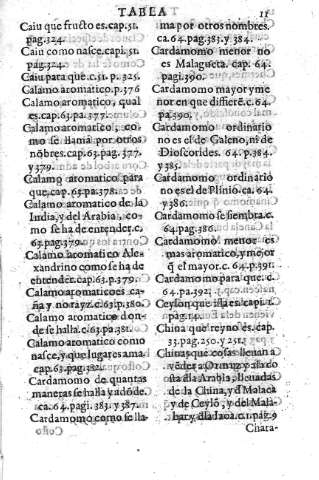 TABLA
11
Caiu que fructo es. cap. 51.
pag. 324.
Caiu como nasce. capi. 51.
pag. 324.
Caiu para que. c. 51. p. 325.
Calamo aromatico. p. 376
Calamo aromatico, qual
es. cap. 63. pa. 377.
Calamo aromatico, co-
mo se llama por otros
nōbres. cap. 63. pag. 377.
y 379.
Calamo aromatico para
que. cap. 63. pa. 378.
Calamo aromatico de la
India, y del Arabia, co-
mo se ha de entender. c.
63. pag. 379.
Calamo aromatico Ale-
xandrino como se ha de
entender. cap. 63. p. 379.
Calamo aromatico es ca-
ña y no rayz. c. 63. p. 380.
Calamo aromatico don-
de se halla. c. 63. pa. 381.
Calamo aromatico como
nasce, y que lugares ama
cap. 63. pag. 382.
Cardamomo de quantas
maneras se halla y adóde.
ca. 64. pagi. 383. y 387.
Cardamomo como se lla-
ma por otros nombres.
ca. 64. pag. 383. y 384.
Cardamomo menor no
es Malagueta. cap. 64.
pagi. 390.
Cardamomo mayor y me
nor en que differē. c. 64.
pa. 390.
Cardamomo ordinario
no es el de Galeno, ni de
Dioscorides. 64. p. 384.
y 385.
Cardamomo ordinario
no es el de Plinio. ca. 64.
y 386.
Cardamomo se siembra. c.
64. pag. 386.
Cardamomo menor es
mas aromatico, y mejor
q̃ el mayor. c. 64. p. 391.
Cardamomo para que. c.
64. pa. 392.
Ceylon que isla es. capi. 1.
pag. 14.
China que reyno es. cap.
33. pag. 250. y 251.
Chinas que cosas lleuan a
vēder a Ormuz y a la co
sta dla Arabia, lleuadas
de la China, y d Malaca
y de Ceylō, y del Mala-
bar, y dla Iaoa. c. 1. pag. 9
Chara-